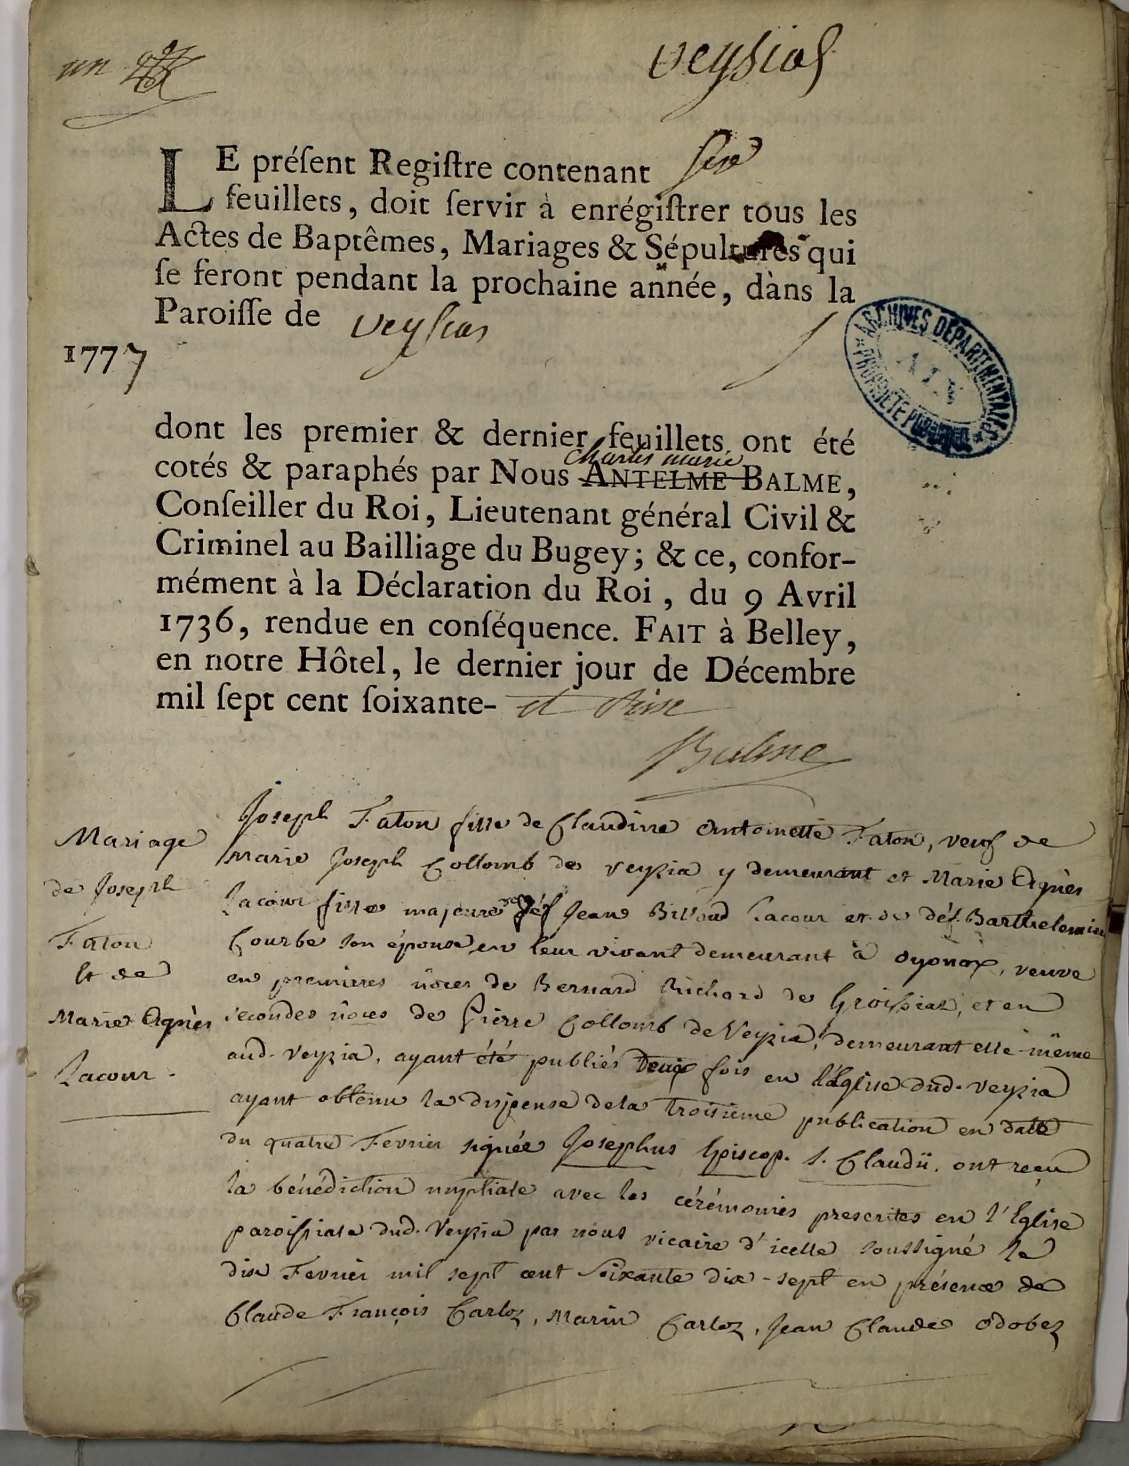 un
veysias
LE préſent Regiſtre contenant six
feuillets, doit ſervir à enrégiſtrer tous les
Actes de Baptêmes, Mariages & Sépultures qui
ſe feront pendant la prochaine année, dàns la
Paroiſſe de veysias
1777
ARCHIVES DÉPARTEMENTALES
PROPRIÉTÉ PUBLIQUE
dont les premier & dernier feuillets ont été
charles marie
cotés & paraphés par Nous ANTELME BALME,
Conſeiller du Roi, Lieutenant général Civil &
Criminel au Bailliage du Bugey; & ce, confor-
mément à la Déclaration du Roi, du 9 Avril
1736, rendue en conſéquence. FAIT à Belley,
en notre Hôtel, le dernier jour de Décembre
mil ſept cent ſoixante- et seise
Balme
Mariage
de Joseph
Faton
Et de
Marie Agnès
Lacour.
Joseph Faton fils de Claudine Antoinette Faton, veuf de
Marie Joseph Collomb de Veyzia y demeurant et Marie Agnès
Lacour fille majeure de déf Jean Billoud Lacour et de déf. Barthelemie
Courbe son épouse, en leur vivant demeurant à oyonax, veuve
en premieres nôces de Bernard Richard de Groissiaz, et en
secondes nôces de Pierre Collomb de Veyzia, demeurant elle-même
aud. Veyzia, ayant été publiés deux fois en l'Eglise dud. Veyzia
ayant obtenu la dispense de la troisième publication en datte
du quatre Fevrier signée Josephus Episcop. S. Claudii, ont reçu
la bénédiction nuptiale avec les cérémonies prescrites en l'Eglise
paroissiale dud. Veyzia par nous vicaire d'icelle soussigné le
dix Fevrier mil sept cent soixante dix-sept en présence de
Claude François Carloz, Marin Carloz, Jean Claude Odobez